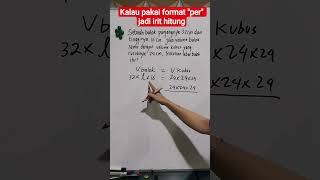 Kalau pakai format "per"
jadi irit hitung
Sebuah balok panjangnya 32 cm dan
tingginya 18 cm. Jika volume balok
sama dengan volume kubus yang
rusuknya 24 cm, tentukan lebar balok
itu!
V balok = V kubus
32 × l × 18 = 24×24×24
24×24×24